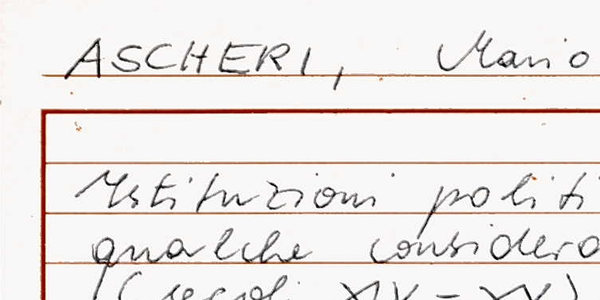 ASCHERI, Mario
Istituzioni politi
qualche considera
(secoli XIV-XV)